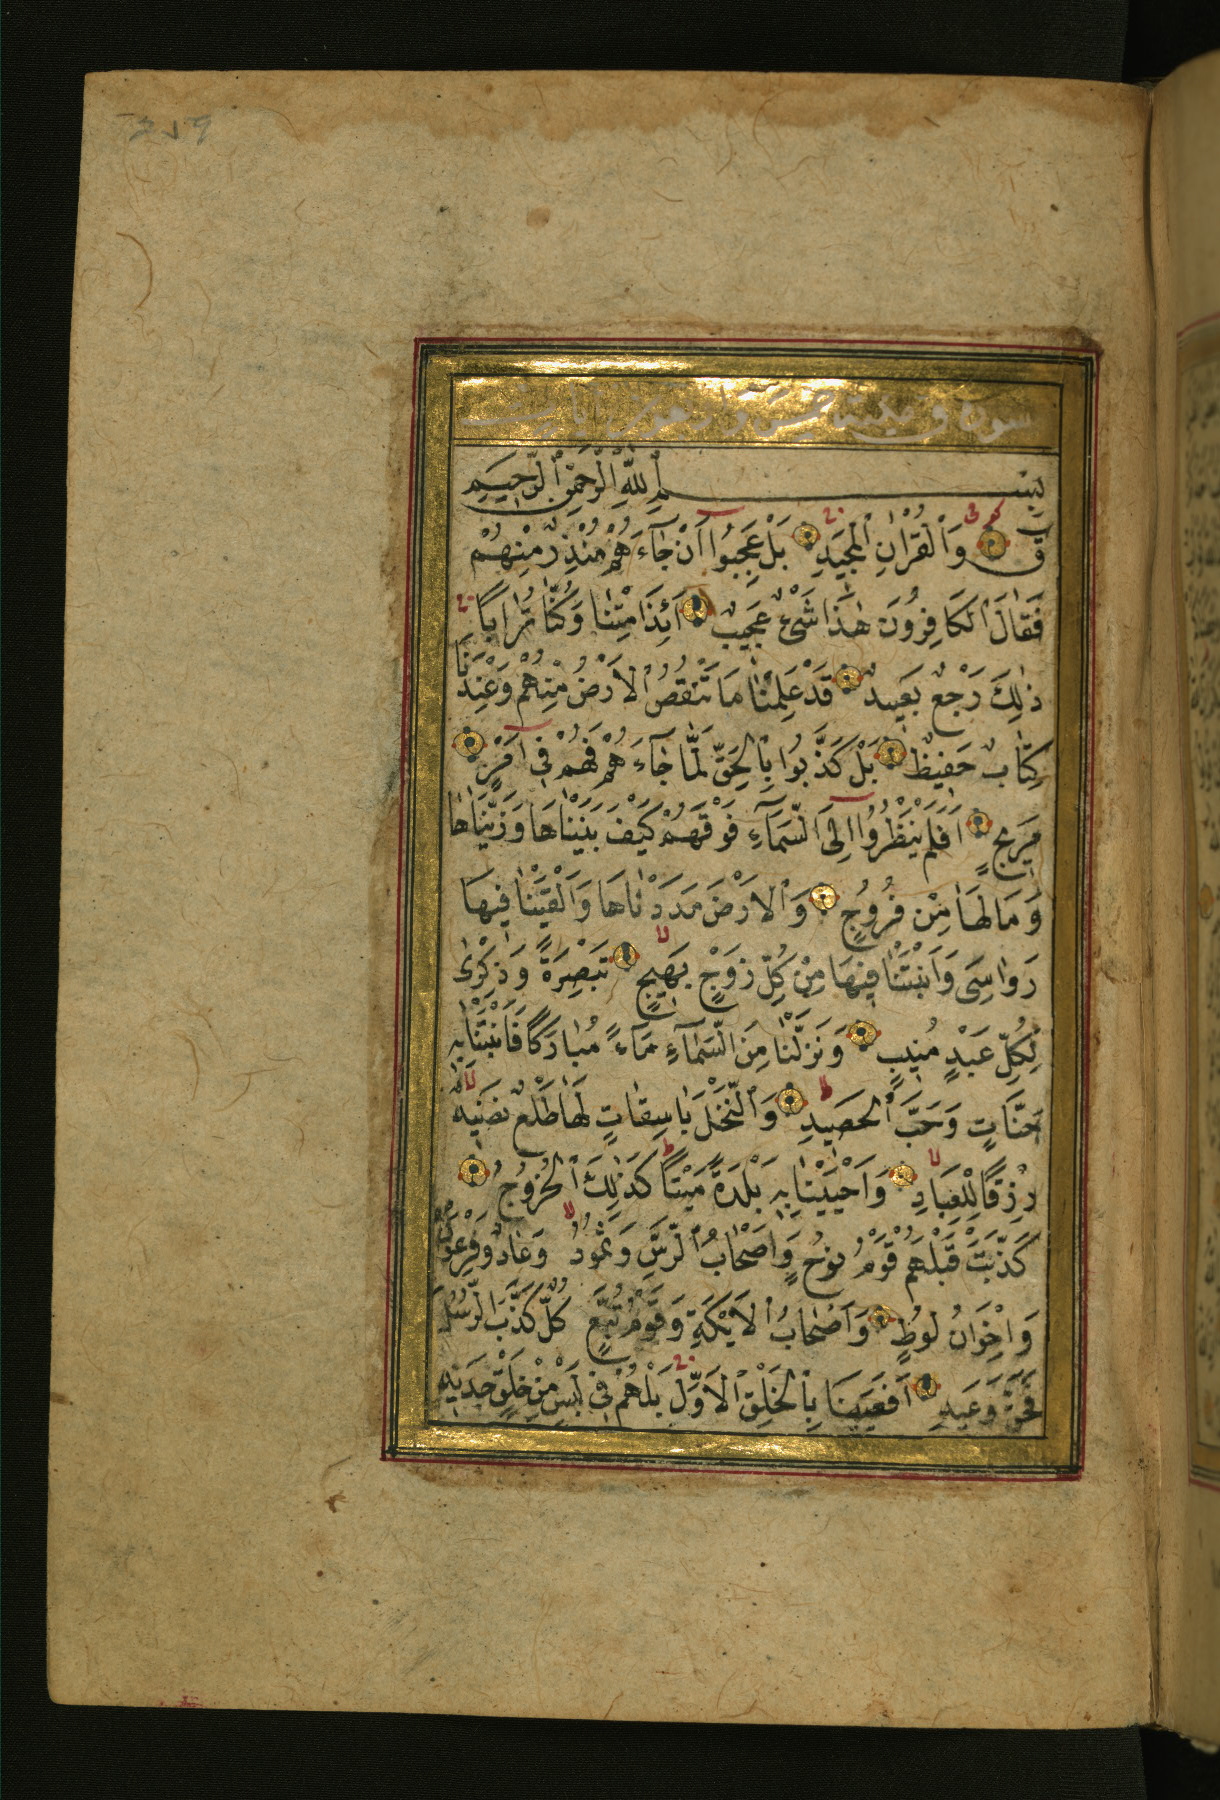 سورة ق مكية خمس واربعون آيات
بِسْمِ اللّٰهِ الرَّحْمٰنِ الرَّحِيمِ
قٓ وَالْقُرْاٰنِ الْمَجِيدِ بَلْ عَجِبُوا اَنْ جَآءَهُمْ مُنْذِرٌ مِنْهُمْ
فَقَالَ الْكَافِرُونَ هٰذَا شَىْءٌ عَجِيبٌ اَئِذَا مِتْنَا وَكُنَّا تُرَابًا
ذٰلِكَ رَجْعٌ بَعِيدٌ قَدْ عَلِمْنَا مَا تَنْقُصُ الْاَرْضُ مِنْهُمْ وَعِنْدَنَا
كِتَابٌ حَفِيظٌ بَلْ كَذَّبُوا بِالْحَقِّ لَمَّا جَآءَهُمْ فَهُمْ فِى اَمْرٍ
مَرِيجٍ اَفَلَمْ يَنْظُرُوا اِلَى السَّمَآءِ فَوْقَهُمْ كَيْفَ بَنَيْنَاهَا وَزَيَّنَّاهَا
وَمَا لَهَا مِنْ فُرُوجٍ وَالْاَرْضَ مَدَدْنَاهَا وَاَلْقَيْنَا فِيهَا
رَوَاسِىَ وَاَنْبَتْنَا فِيهَا مِنْ كُلِّ زَوْجٍ بَهِيجٍ تَبْصِرَةً وَذِكْرٰى
لِكُلِّ عَبْدٍ مُنِيبٍ وَنَزَّلْنَا مِنَ السَّمَآءِ مَآءً مُبَارَكًا فَاَنْبَتْنَا بِهِ
جَنَّاتٍ وَحَبَّ الْحَصِيدِ وَالنَّخْلَ بَاسِقَاتٍ لَهَا طَلْعٌ نَضِيدٌ
رِزْقًا لِلْعِبَادِ وَاَحْيَيْنَا بِهِ بَلْدَةً مَيْتًا كَذٰلِكَ الْخُرُوجُ
كَذَّبَتْ قَبْلَهُمْ قَوْمُ نُوحٍ وَاَصْحَابُ الرَّسِّ وَثَمُودُ وَعَادٌ وَفِرْعَوْنُ
وَاِخْوَانُ لُوطٍ وَاَصْحَابُ الْاَيْكَةِ وَقَوْمُ تُبَّعٍ كُلٌّ كَذَّبَ الرُّسُلَ
فَحَقَّ وَعِيدِ اَفَعَيِينَا بِالْخَلْقِ الْاَوَّلِ بَلْ هُمْ فِى لَبْسٍ مِنْ خَلْقٍ جَدِيدٍ